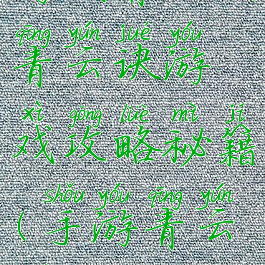 qīng yún jué yóu
青云诀游
xì gōng lüè mì jí
戏攻略秘籍
shǒu yóu qīng yún
(手游青云